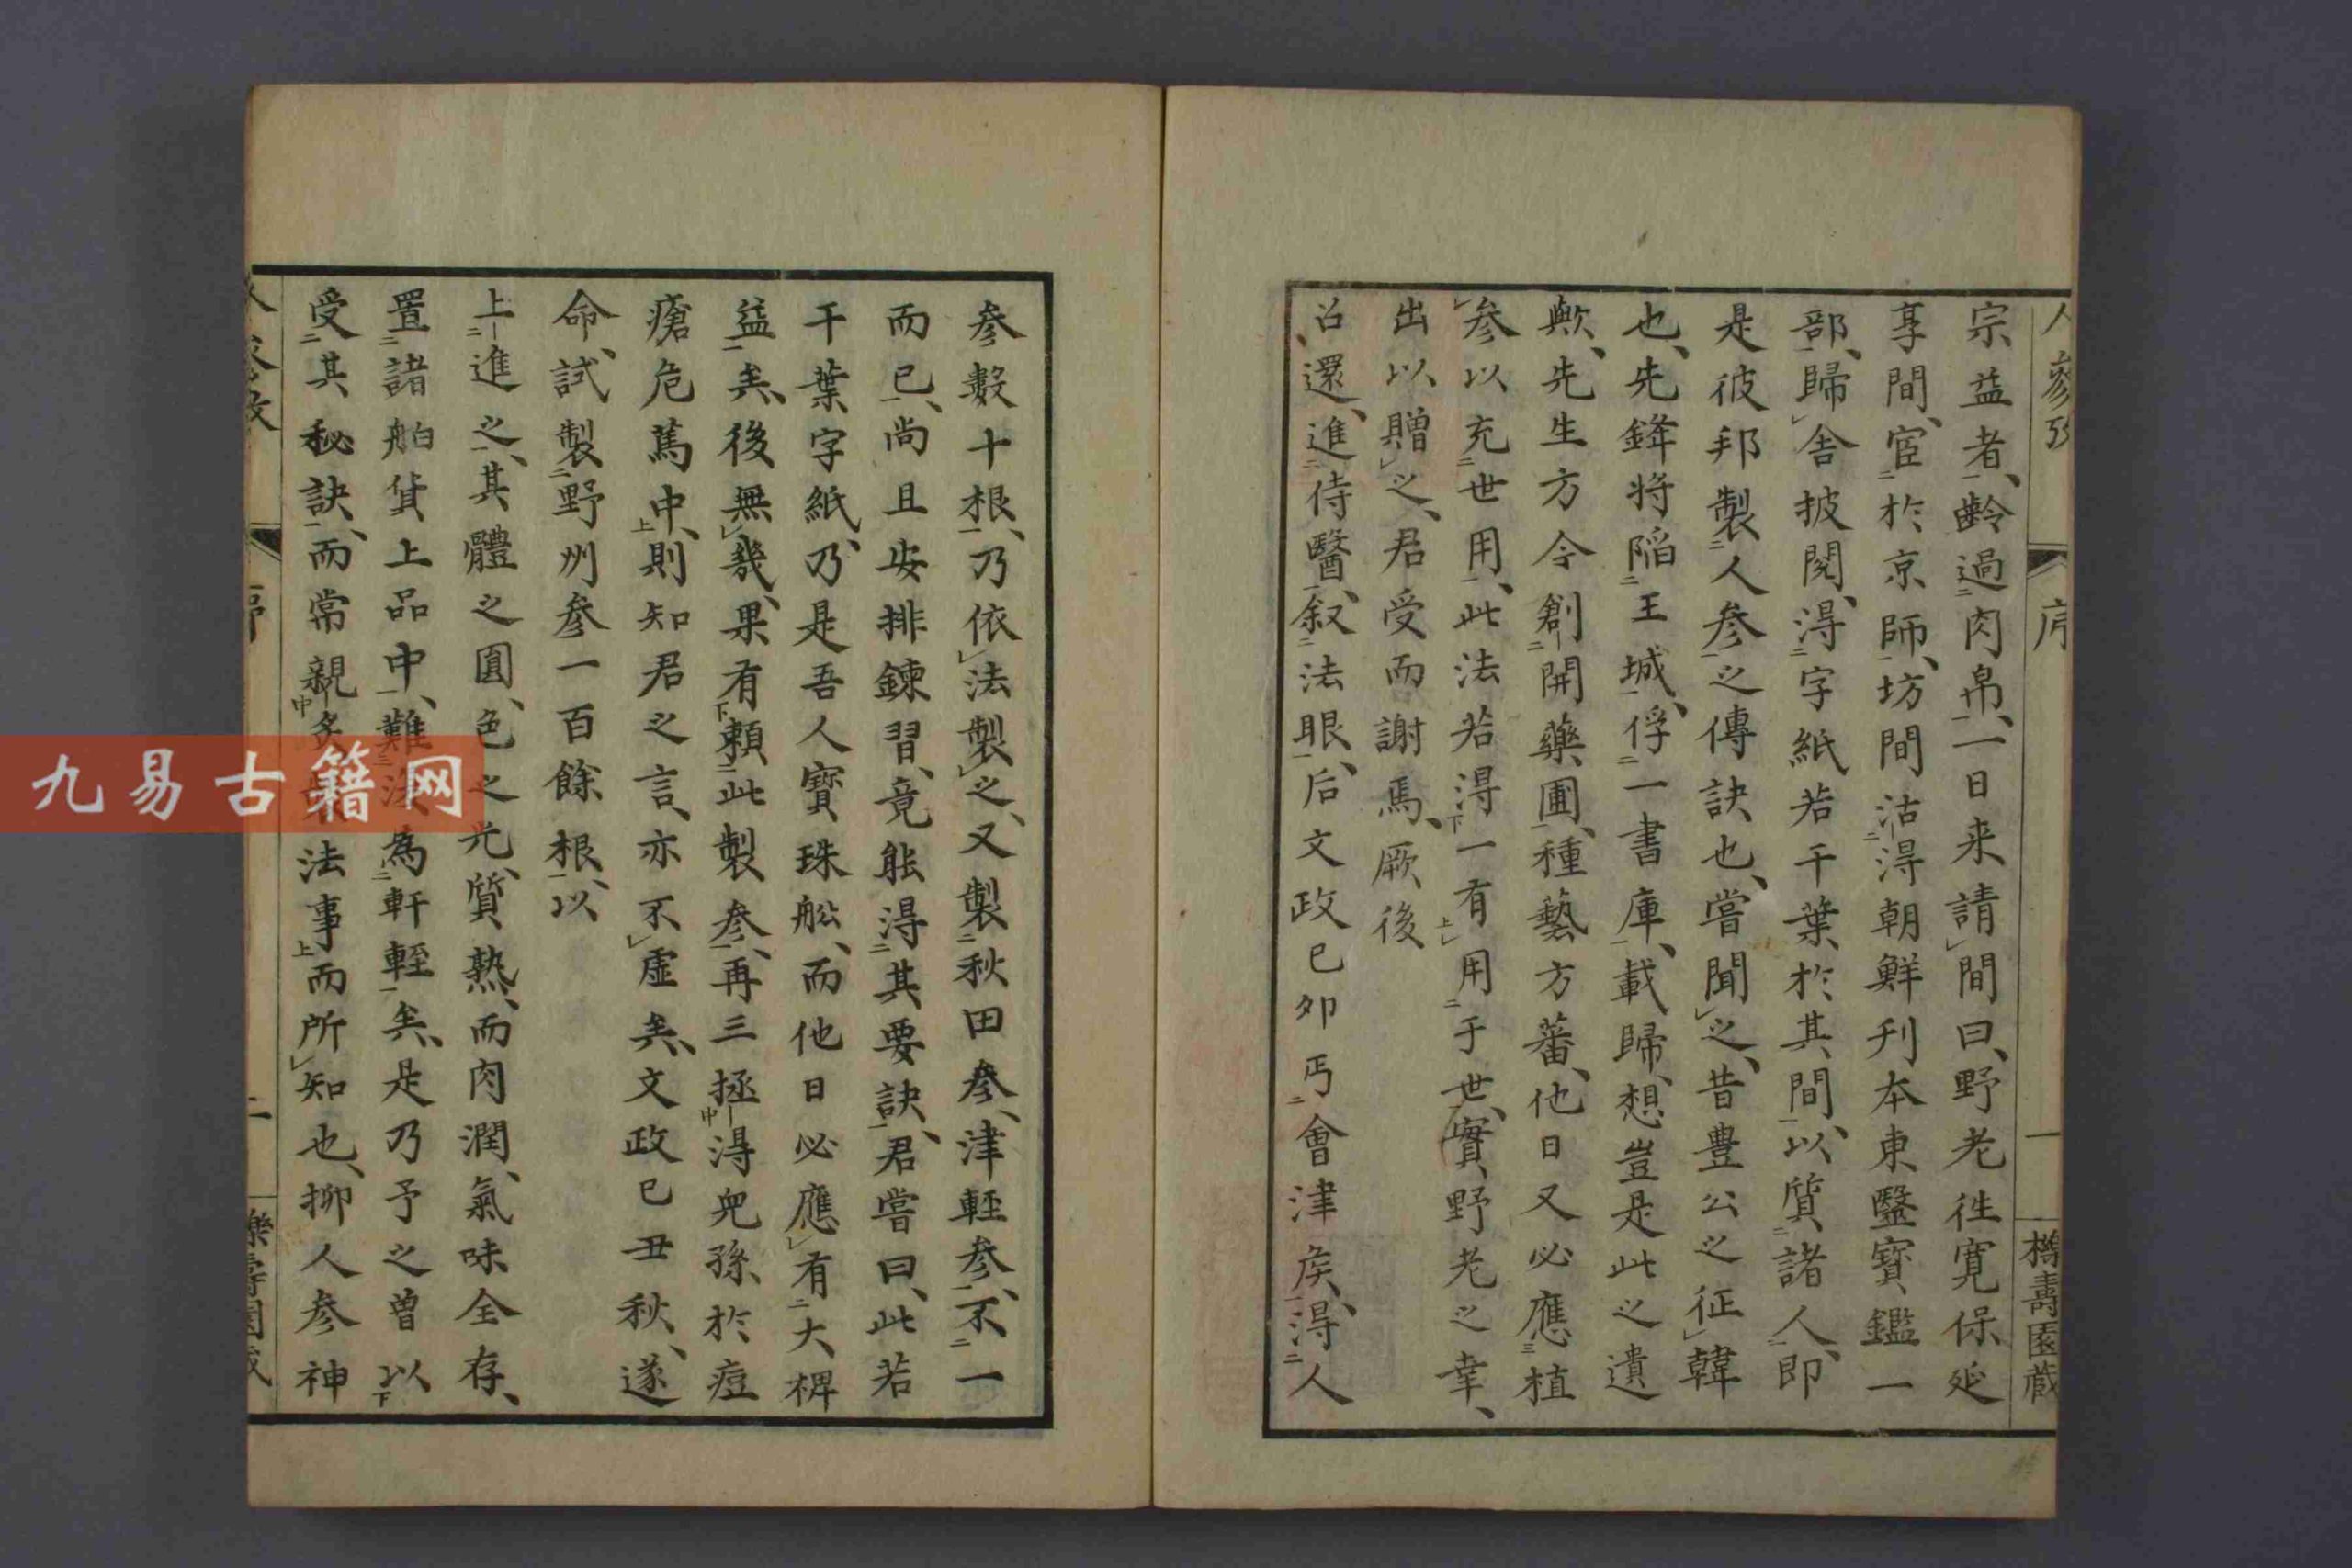 宗益者、齡過肉帛、一日来請間曰、野老徃寛保延
享間、宦於京師、坊間沽得朝鮮刋本東醫寳鑑一
部、歸舎披閲、得字紙若干葉於其間、以質諸人、即
是彼邦製人参之傳訣也、嘗聞之、昔豊公之征韓
也、先鋒将陥王城、俘一書庫、載歸、想豈是此之遺
歟、先生方今創開藥圃、種藝方蕃、他日又必應植
参以充世用、此法若得一有用于世、實野老之幸、
出以贈之、君受而謝焉、厥後
召還、進侍醫、叙法眼、后文政已夘丐會津矦、得人
参數十根、乃依法製之、又製秋田参、津輕参、不一
而已、尚且安排鍊習、竟能得其要訣、君嘗曰、此若
干葉字紙、乃是吾人寳珠舩、而他日必應有大裨
益矣、後無幾、果有頼此製参、再三拯得兒孫於痘
瘡危篤中、則知君之言、亦不虚矣、文政已丑秋、遂
命、試製野州参一百餘根、以
上進之、其體之圓、色之光、質熟、而肉潤、氣味全存、
置諸舶貨上品中、難為軒輊矣、是乃予之曽以
受其秘訣、而常親炙法事而所知也、抑人参神
人參攷 序 一
二
九易古籍网